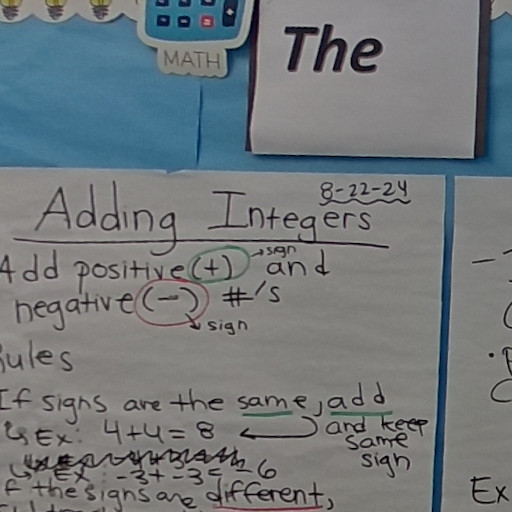 MATH
The
8-22-24
Adding Integers
Add positive (+) →sign and
negative (-) #'s
↘ sign
Rules
If signs are the same, add
↳ Ex: 4+4=8 and keep
same
sign
Ex: -3+-3=-6
If the signs are different,
Ex